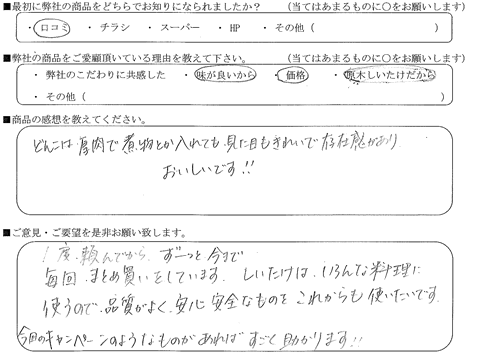 ■最初に弊社の商品をどちらでお知りになられましたか？　（当てはあまるものに〇をお願いします）
・口コミ　・チラシ　・スーパー　・HP　・その他（　）
■弊社の商品をご愛顧頂いている理由を教えて下さい。　（当てはあまるものに〇をお願いします）
・弊社のこだわりに共感した　・味が良いから　・価格　・原木しいたけだから
・その他（　）
■商品の感想を教えてください。
どんこは厚肉で煮物とか入れても見た目もきれいで存在感があり
おいしいです!!
■ご意見・ご要望を是非お願い致します。
1度頼んでから、ずーっと今まで
毎回まとめ買いをしています。しいたけは、いろんな料理に
使うので、品質がよく、安心安全なものをこれからも使いたいです。
今回のキャンペーンのようなものがあればすごく助かります!!